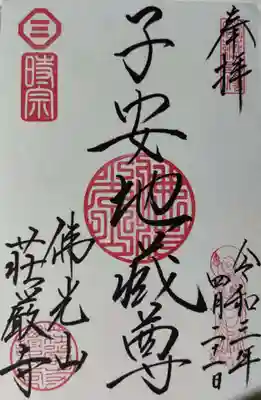 奉拝
令和三年
四月二十二日
子安地蔵尊
三
時宗
佛光山
荘厳寺